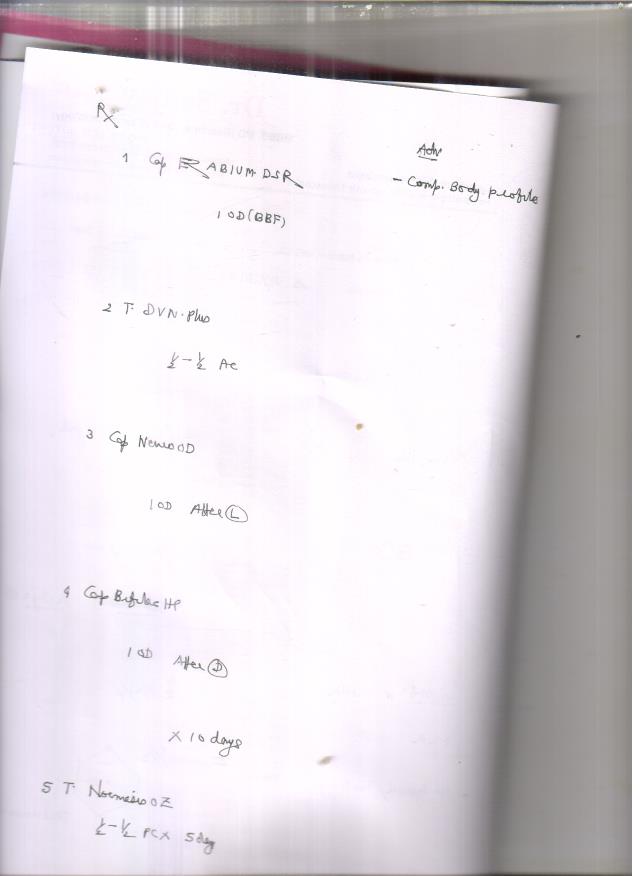 Rx
Adv
- Comp. Body profile
1 Cap RABIUM DSR
1 OD (BBF)
2 T. DVN. Plus
½ - ½ AC
3 Cap Neuro OD
1 OD After L
4 Cap Bifilac HP
1 OD After D
x 10 days
5 T. OZ
½ - ½ PC x 5 day